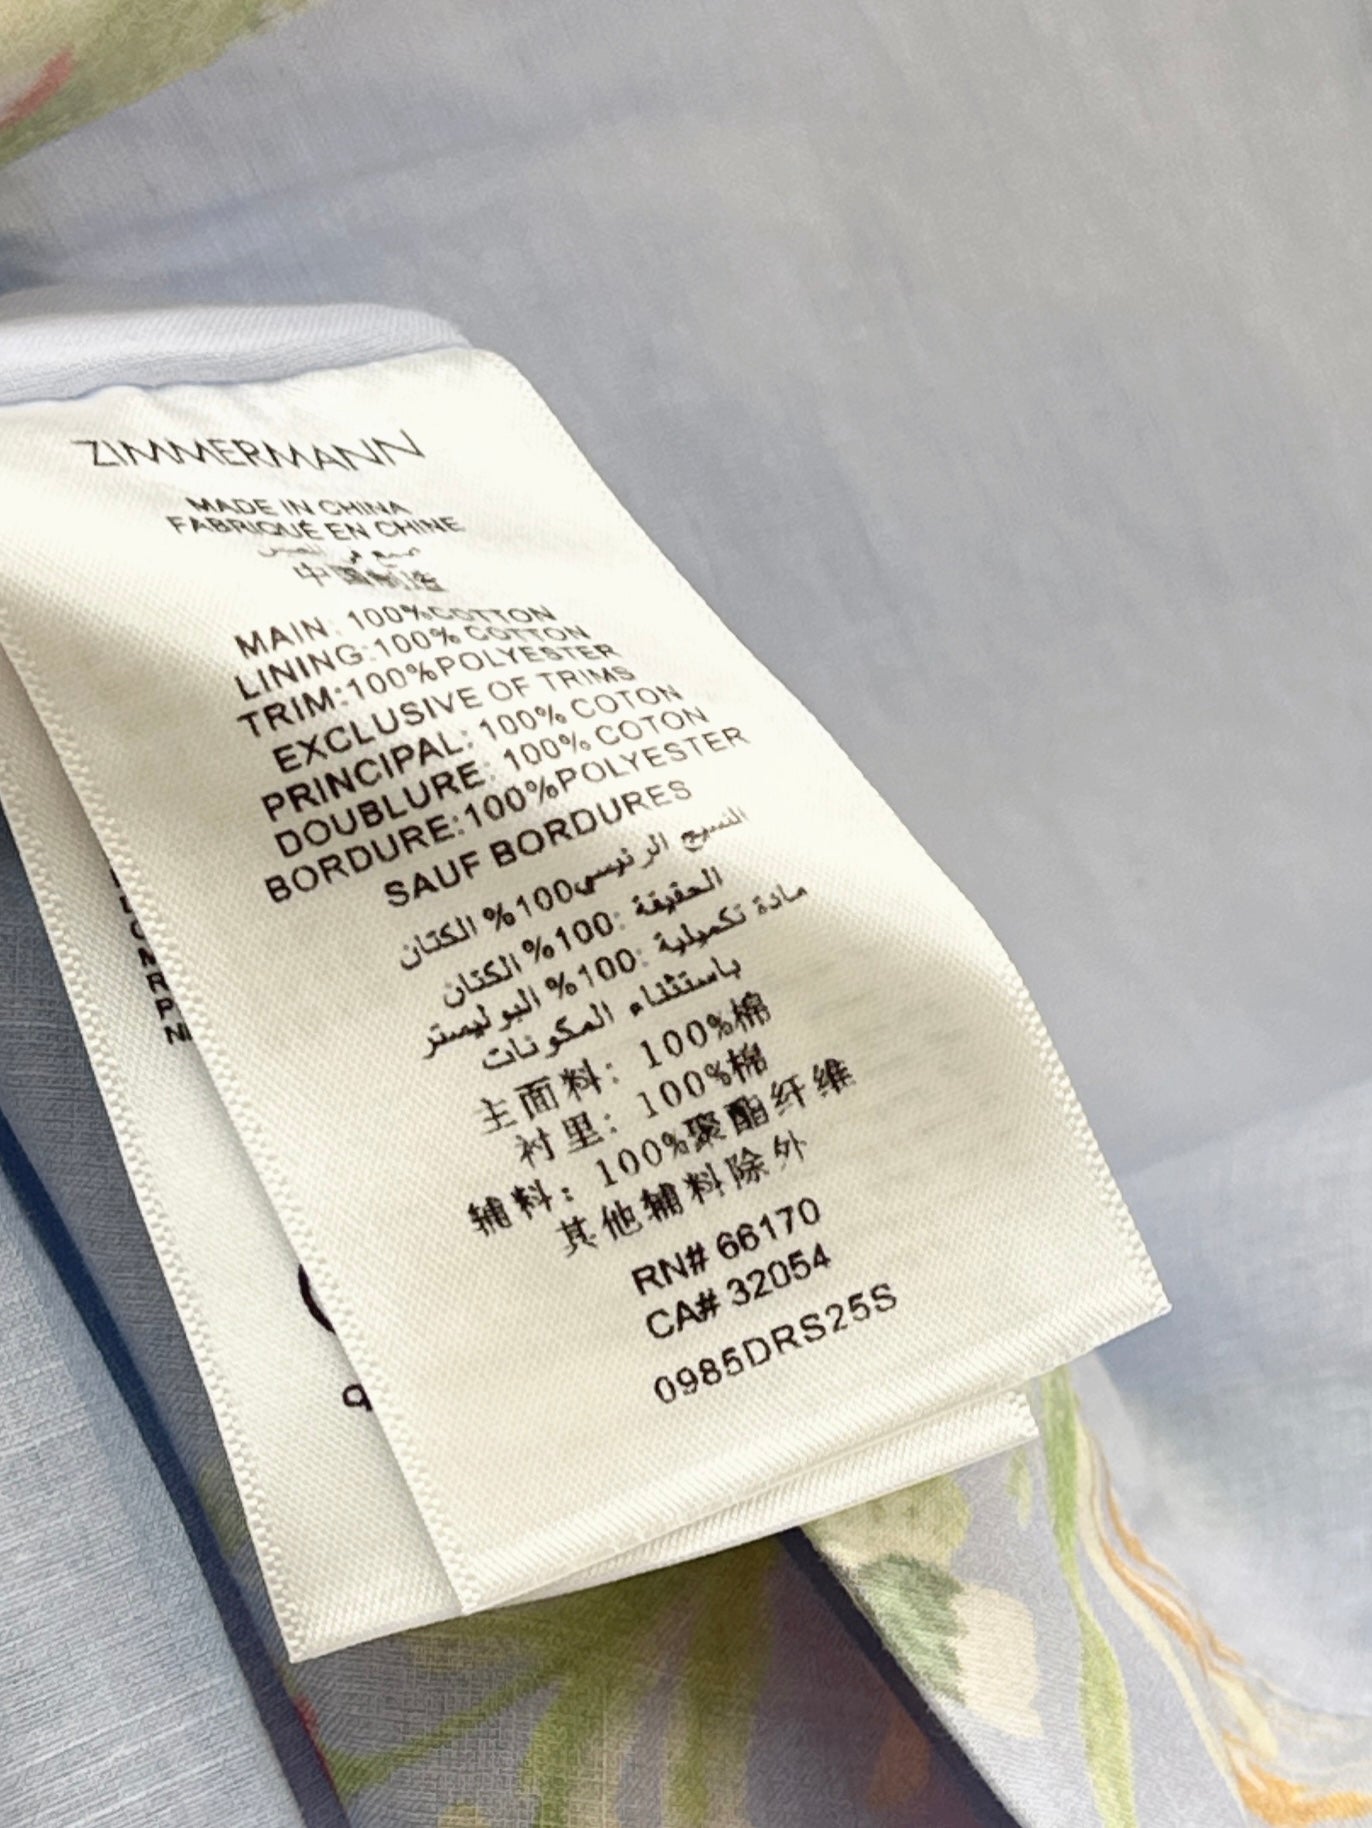 ZIMMERMANN
MADE IN CHINA
FABRIQUÉ EN CHINE
中国制造
MAIN: 100%COTTON
LINING:100% COTTON
TRIM:100%POLYESTER
EXCLUSIVE OF TRIMS
PRINCIPAL: 100% COTON
DOUBLURE: 100% COTON
BORDURE:100%POLYESTER
SAUF BORDURES
النسيج الرئيسي100% الكتان
الحقيقة :100% الكتان
مادة تكميلية :100% البوليستر
باستثناء المكونات
主面料: 100%棉
衬里: 100%棉
辅料: 100%聚酯纤维
其他辅料除外
RN# 66170
CA# 32054
0985DRS25S